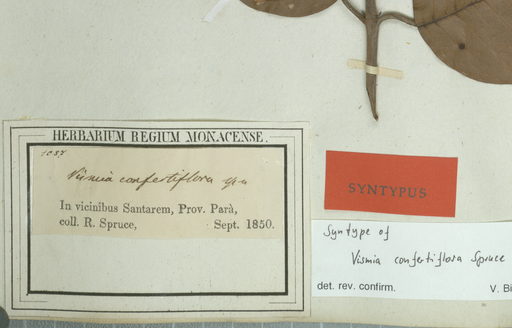 HERBARIUM REGIUM MONACENSE.
1087
Vismia confertiflora
In vicinibus Santarem, Prov. Parà,
coll. R. Spruce, Sept. 1850.
SYNTYPUS
Syntype of
Vismia confertiflora Spruce
det. rev. confirm. V. Bi